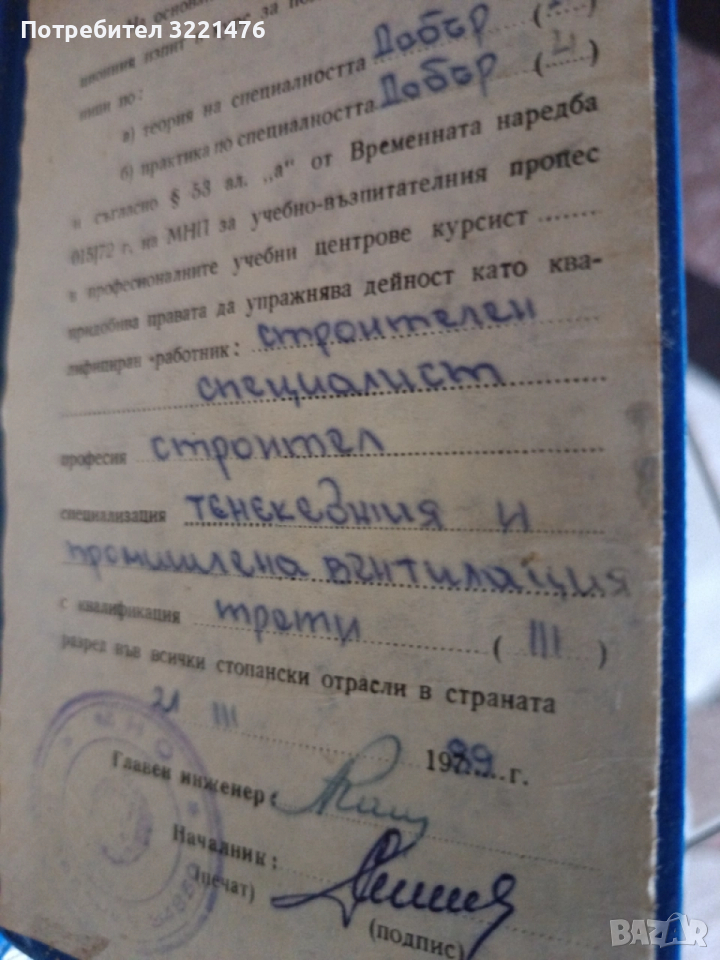 Потребител 3221476
На основан
ционния изпит за
а) теория на специалността Добър (
б) практика по специалността Добър (4)
и съгласно § 53 ал. „а“ от Временната наредба
015/72 г. на МНП за учебно-възпитателния процес
в професионалните учебни центрове курсист
придобива правата да упражнява дейност като ква-
лифициран работник: строителен
специалист
професия строител
специализация тенекеджия и
промишлена вентилация
с квалификация трети (III)
разред във всички стопански отрасли в страната
21 III 1989 г.
Главен инженер:
Началник:
(печат)
(подпис)
МНО
BAZAR